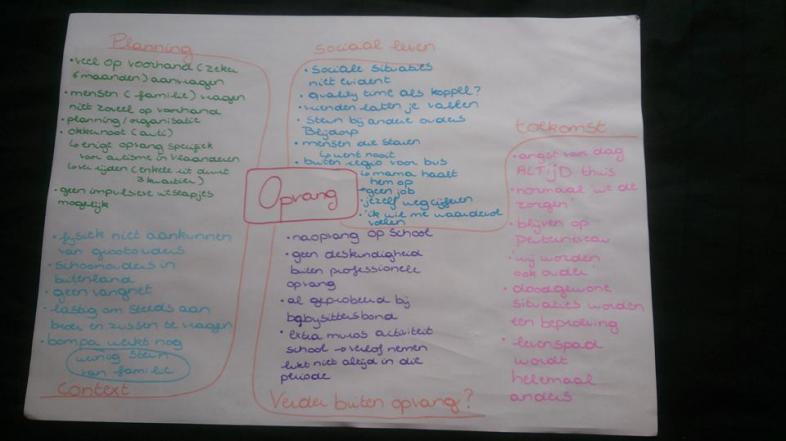 Planning
• veel op voorhand (zeker
6 maanden) aanvragen
• mensen (familie) vragen
niet zoveel op voorhand
• planning/organisatie
• okkernoot (auti)
↳ enige opvang specifiek
van autisme in Vlaanderen
↳ ver rijden (enkele rit duurt
3 kwartier)
• geen impulsieve uitstapjes
mogelijk
• fysiek niet aankunnen
van grootouders
• schoonouders in
buitenland
• geen vangnet
• lastig om steeds aan
broer en zussen te vragen
• bompa werkt nog
weinig steun
van familie
Context
Sociaal leven
• Sociale situaties
niet evident
• quality time als koppel?
• vrienden laten je vallen
• Steun bij andere ouders
• mensen die staren
↳ went nooit
• buiten regio voor bus
↳ mama haalt
hem op
• geen job
• jezelf wegcijferen
• 'ik wil me waardevol
voelen
Opvang
• naopvang op school
• geen deskundigheid
buiten professionele
opvang
• al geprobeerd bij
babysittersbond
• extra muros activiteit
school → verlof nemen
lukt niet altijd in die
periode
Verder buiten opvang?
toekomst
• angst van dag
ALTIJD thuis
• normaal we de
zorgen'
• blijven op
peuterniveau
• wij worden
ook ouder
• doodgewone
situaties worden
een beproeving
• levenspad
wordt
helemaal
anders